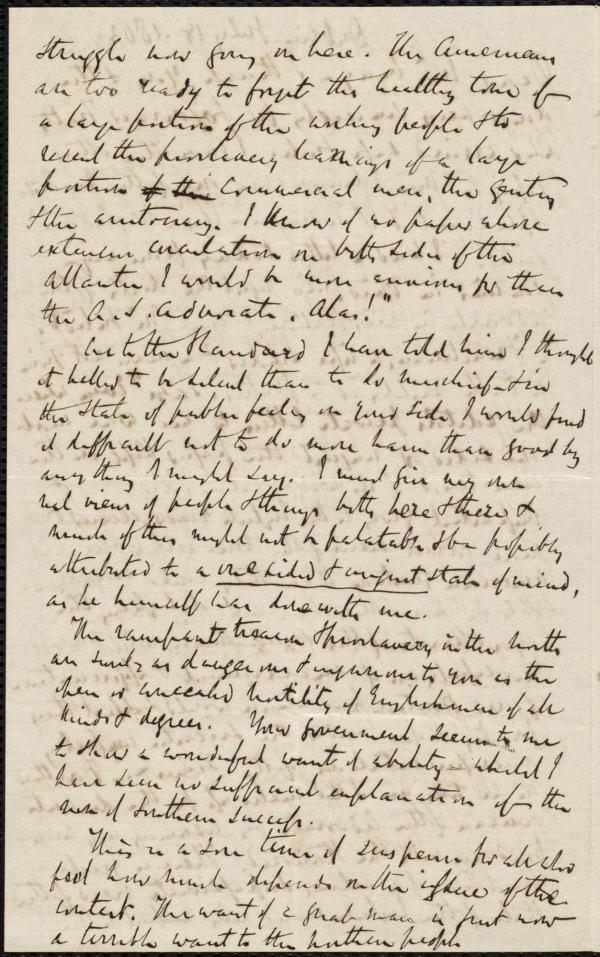 struggle now going on here. The Americans
are too ready to forget the healthy tone of
a large portion of the working people & to
resent the proslavery leanings of a large
portion of the commercial men, the gentry
& the aristocracy. I know of no paper whose
extensive circulation on both sides of the
Atlantic I would be more anxious for than
the A. S. Advocate. Alas!"
As to the Standard I have told him I thought
it better to be silent than to do mischief - & in
the state of public feeling on your side I would find
it difficult not to do more harm than good by
anything I might say. I must give my own
real views of people & things both here & there &
much of this might not be palatable & be possibly
attributed to a one sided & unjust state of mind,
as he himself has done with me.
The rampant treason & proslavery in the North
are surely as dangerous & injurious to you as the
open or concealed hostility of Englishmen of all
kinds & degrees. Your government seems to me
to show a wonderful want of ability - whilst I
have seen no sufficient explanation of the
run of Southern success.
This is a sore time of suspense for all who
feel how much depends on the issue of the
contest. The want of a great man is just now
a terrible want to the northern people